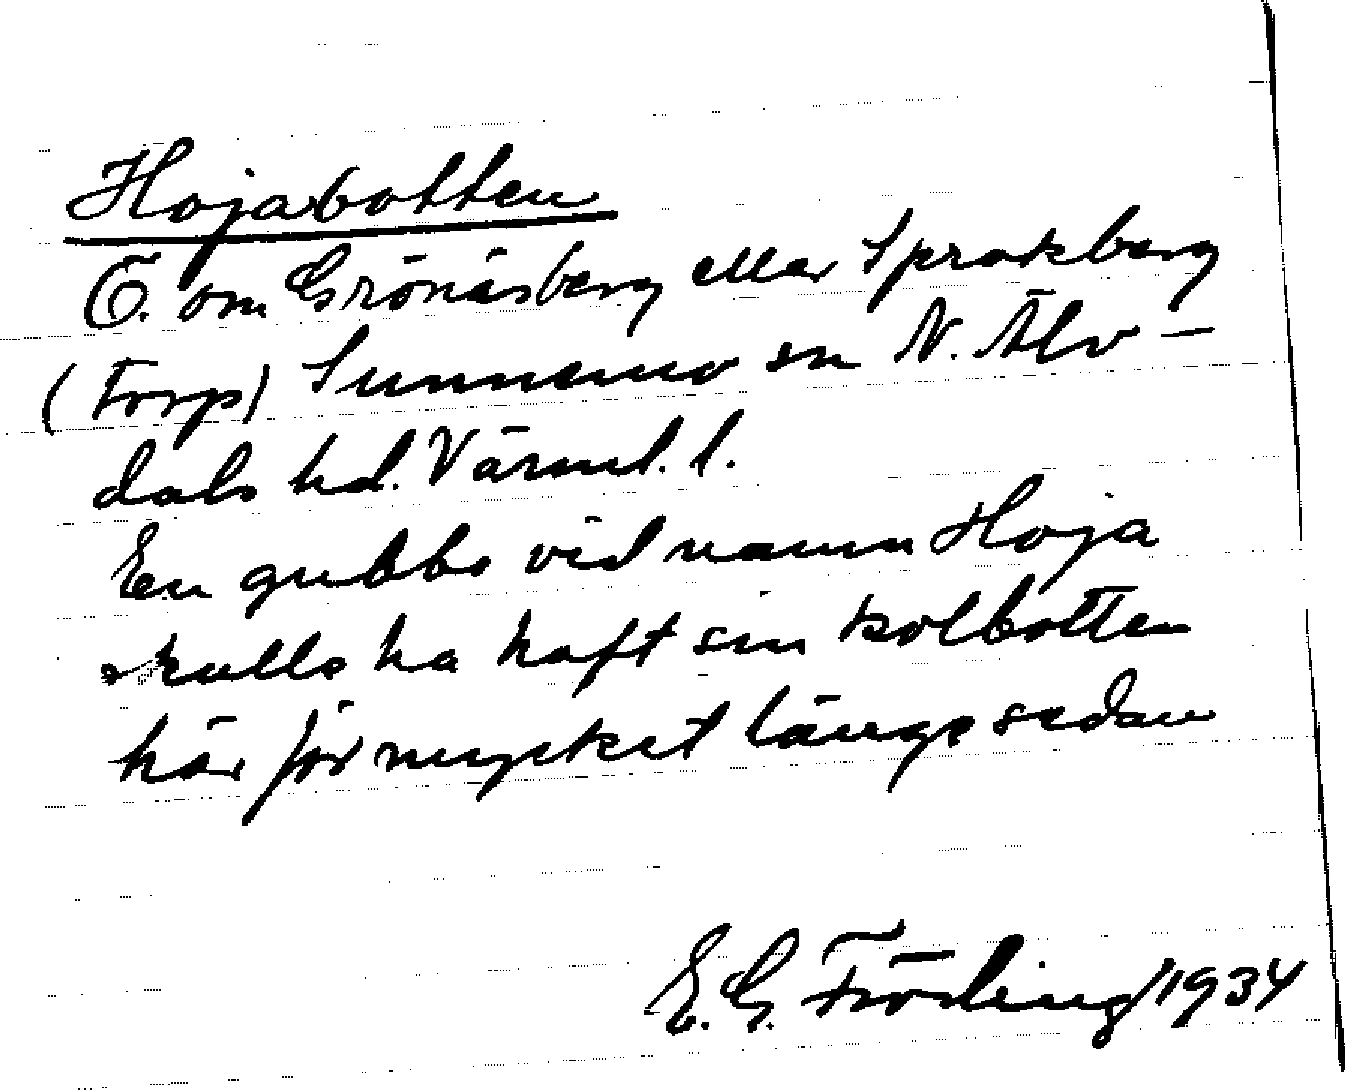 Hojabotten
Ö. om Grönåsberg eller Sprakberg
(Torp) Sunnemo sn N. Älv-
dals hd. Värml. l.
En gubbe vid namn Hoja
skulle ha haft sin kolbotten
här för mycket länge sedan
E. G. Fröding/1934